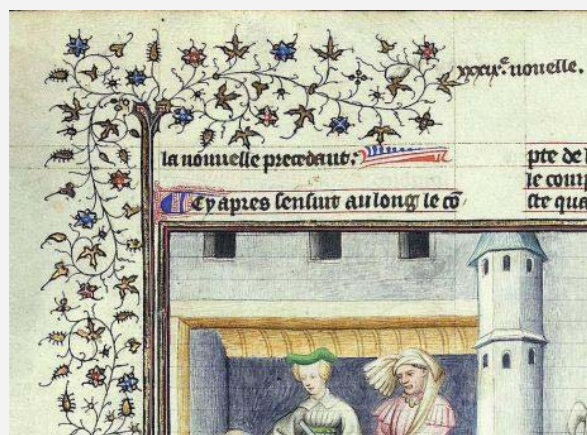 nouelle.
la nouuelle precedant:
Cy apres sensuit au long le cō
pte de
le com
cte qua